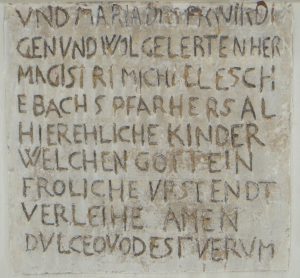 VND MARIA DES EHRWIRDI
GEN VND WOL GELERTEN HER
MAGISTRI MICHEL ESCH
EBACHS PFARHERS AL
HIER EHLICHE KINDER
WELCHEN GOTT EIN
FROLICHE VRSTENDT
VERLEIHE AMEN
DVLCE QVOD EST VERVM